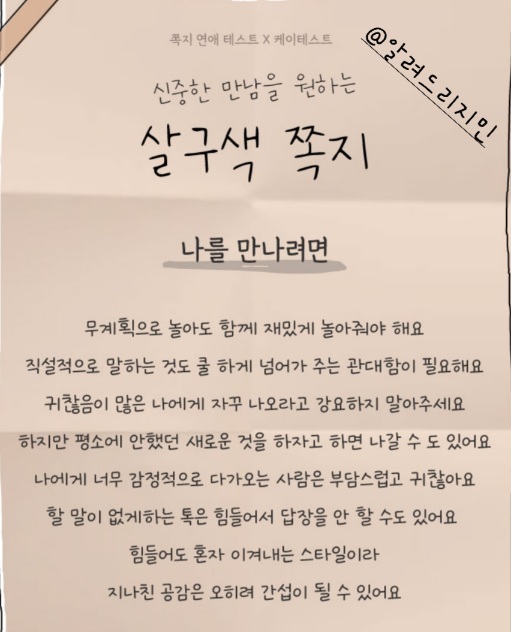 쪽지 연애 테스트 X 케이테스트
@알려드리지민
신중한 만남을 원하는
살구색 쪽지
나를 만나려면
무계획으로 놀아도 함께 재밌게 놀아줘야 해요
직설적으로 말하는 것도 쿨 하게 넘어가 주는 관대함이 필요해요
귀찮음이 많은 나에게 자꾸 나오라고 강요하지 말아주세요
하지만 평소에 안했던 새로운 것을 하자고 하면 나갈 수 도 있어요
나에게 너무 감정적으로 다가오는 사람은 부담스럽고 귀찮아요
할 말이 없게하는 톡은 힘들어서 답장을 안 할 수도 있어요
힘들어도 혼자 이겨내는 스타일이라
지나친 공감은 오히려 간섭이 될 수 있어요